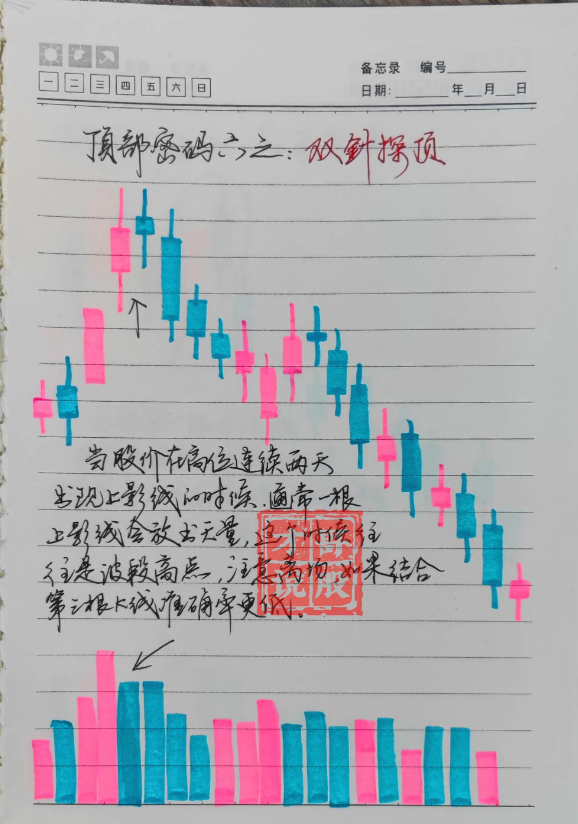 备忘录 编号
一 二 三 四 五 六 日
日期: 年 月 日
顶部密码六之: 双针探顶
当股价在高位连续两天
出现上影线的时候,通常一根
上影线会放出天量,这个时候往
往是波段高点,注意离场,如果结合
第三根K线准确率更低.